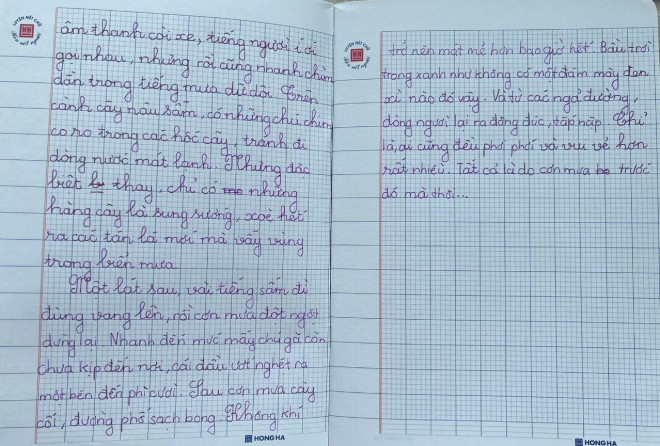 âm thanh còi xe, tiếng người í ới
gọi nhau, nhưng rồi cũng nhanh chìm
dần trong tiếng mưa dữ dội. Trên
cành cây nâu sẫm, có những chú chim
co ro trong các hốc cây, tránh đi
dòng nước mát lạnh. Nhưng đặc
biệt thay, chỉ có những
hàng cây là sung sướng, xoè hết
ra các tán lá mới mà vẫy vùng
trong biển mưa
Một lát sau, vài tiếng sấm đì
đùng vang lên, rồi cơn mưa đột ngột
dừng lại. Nhanh đến mức mấy chú gà còn
chưa kịp đến nơi, cái đầu ướt nghét ra
một bên đến phì cười. Sau cơn mưa cây
cối, đường phố sạch bong. Không khí
HONG HA
trở nên mát mẻ hơn bao giờ hết. Bầu trời
trong xanh như không có một đám mây đen
xì nào đó vậy. Và từ các ngả đường,
dòng người lại ra đông đúc, tấp nập. Chú
là, ai cũng đều phơi phới và vui vẻ hơn
rất nhiều. Tất cả là do cơn mưa trước
đó mà thôi...
HONG HA